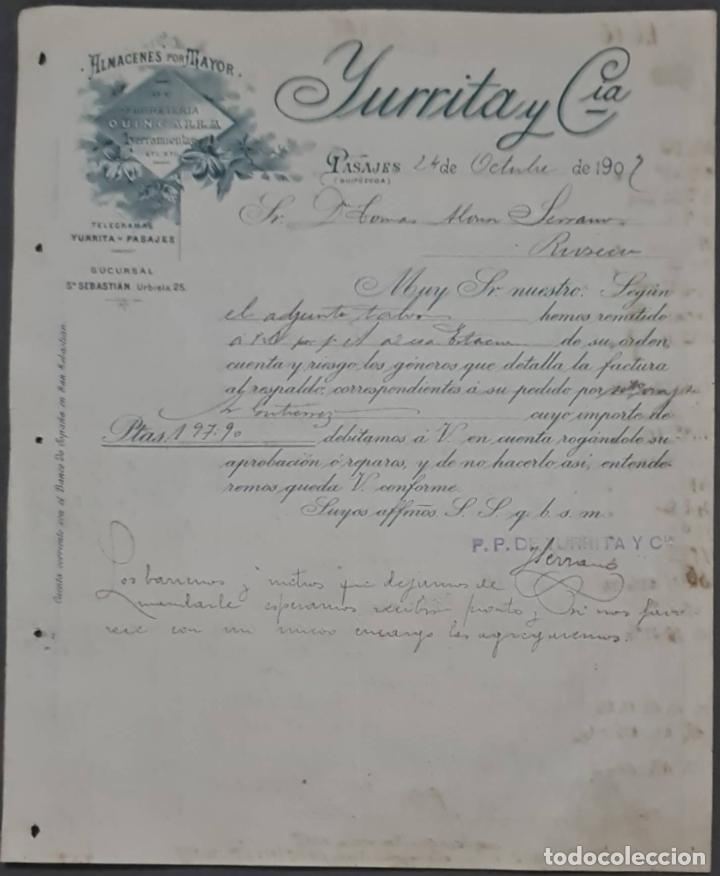 ALMACENES POR MAYOR
DE
FERRETERIA
QUINCALLA
Herramientas
ETC. ETC.
Yurrita y Cia
PASAJES 24 de Octubre de 1907
(GUIPÚZCOA)
Sr. Dn Tomas Alonso Serrano
Rioseco
TELEGRAMAS
YURRITA - PASAJES
SUCURSAL
Sn SEBASTIÁN Urbieta, 25.
Cuenta corriente con el Banco de España en San Sebastián.
Muy Sr. nuestro: Según
el adjunto talon hemos remitido
á Vd por p. v. á esa Estación de su orden,
cuenta y riesgo los géneros que detalla la factura
al respaldo, correspondientes á su pedido por
Gutierrez cuyo importe de
Ptas. 197.90 debitamos á V. en cuenta rogándole su
aprobación ó reparos, y de no hacerlo asi, entende-
remos queda V. conforme.
Suyos affmos. S. S. q. b. s. m.
P. P. DE YURRITA Y Cia
JSerrano
Los barrenos y metros que dejamos de
mandarle esperamos recibir pronto y si nos favo
rece con un nuevo encargo los agregaremos.
todocoleccion
todocoleccion.net